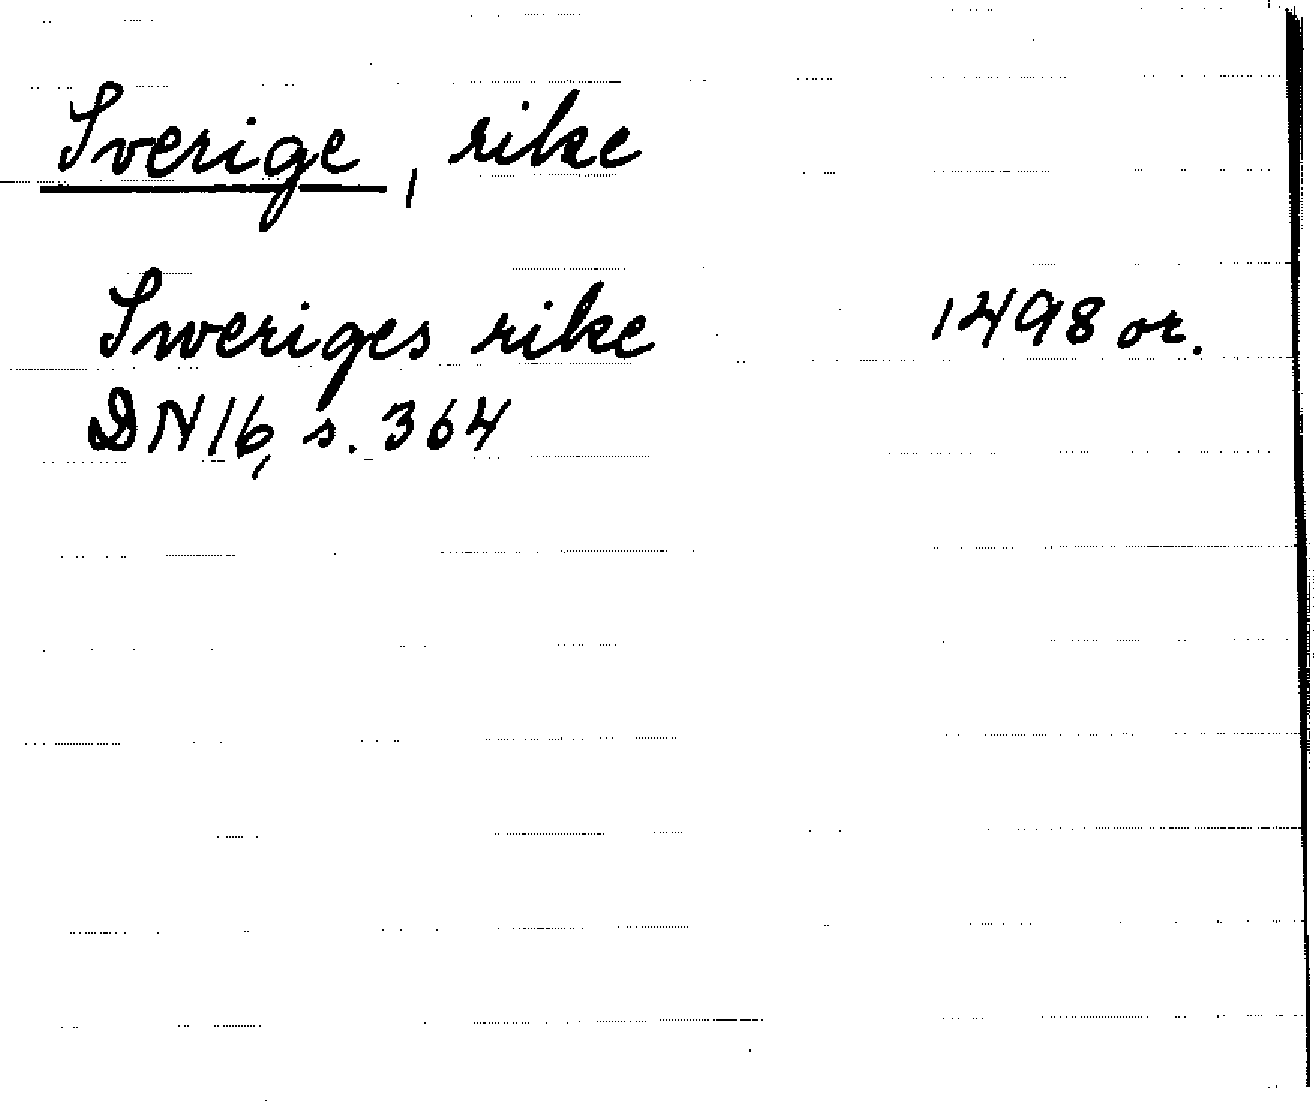 Sverige, rike
Sweriges rike 1498 or.
DN16, s. 364